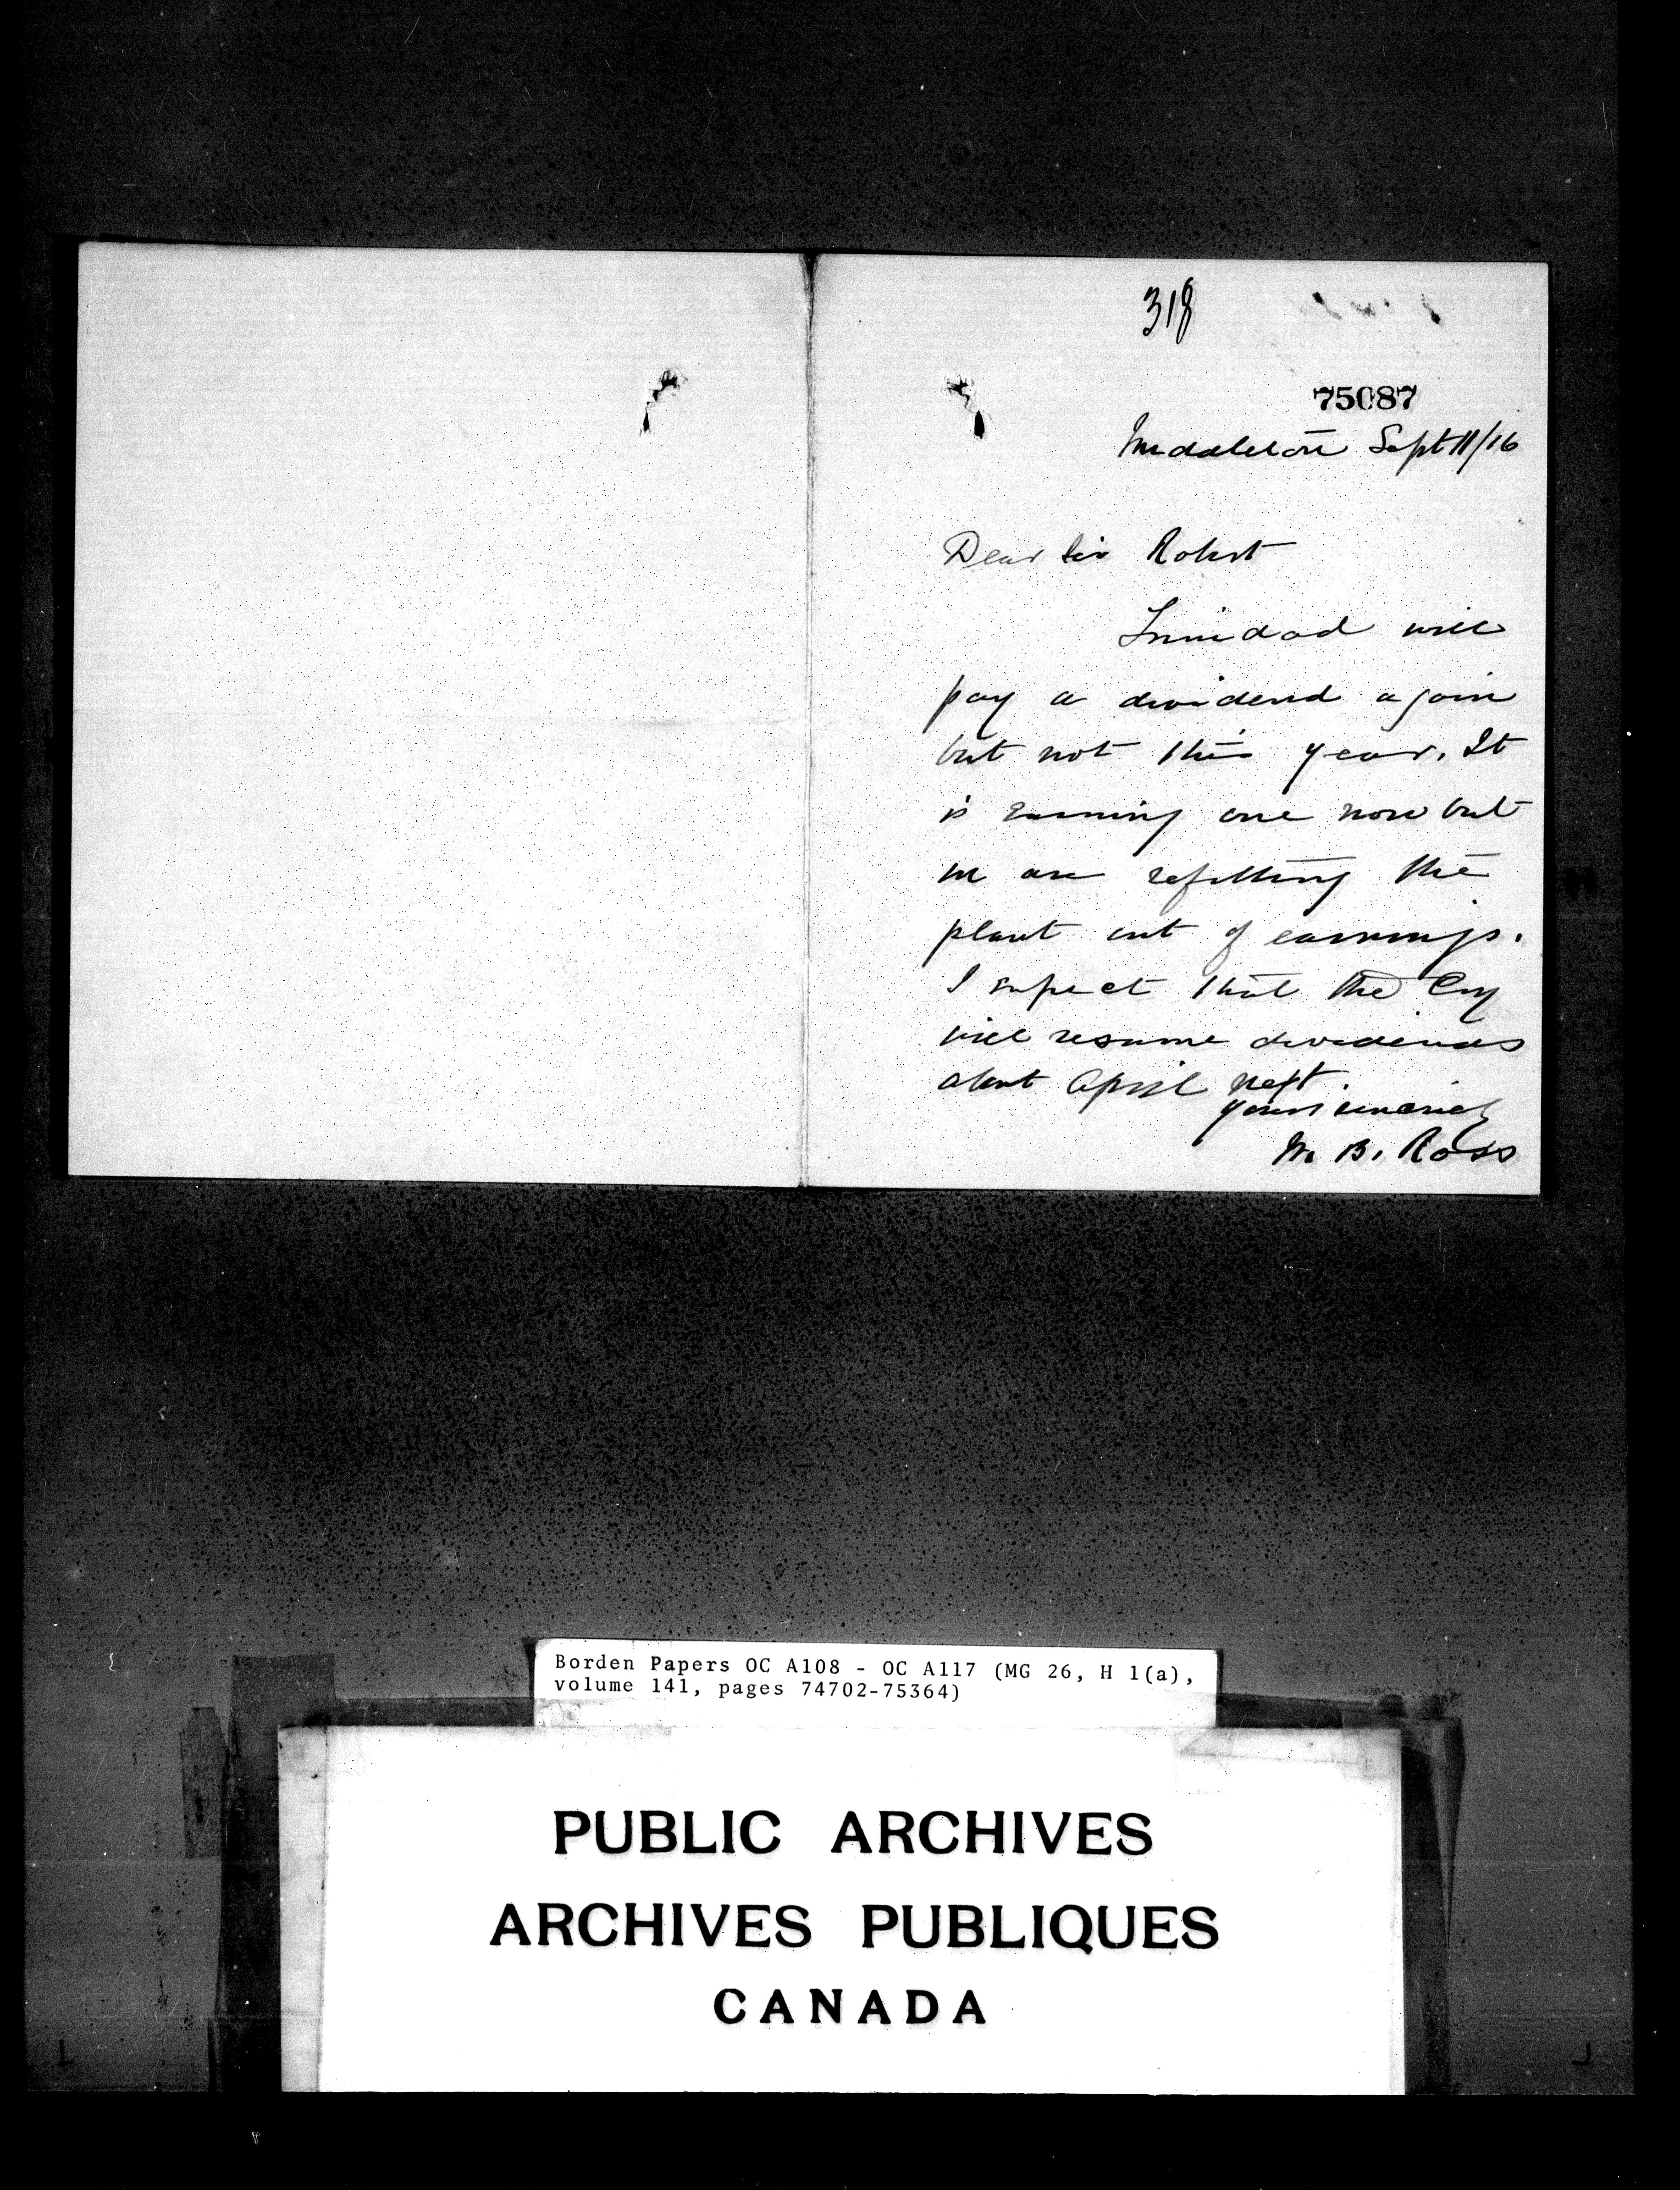 318
75087
Middleton Sept 11/16
Dear Sir Robert
Trinidad will
pay a dividend again
but not this year. It
is earning one now but
we are refitting the
plant out of earnings.
I expect that the Coy
will resume dividends
about April next.
Yours sincerely
W. B. Ross
Borden Papers OC A108 - OC A117 (MG 26, H 1(a),
volume 141, pages 74702-75364)
PUBLIC ARCHIVES
ARCHIVES PUBLIQUES
CANADA